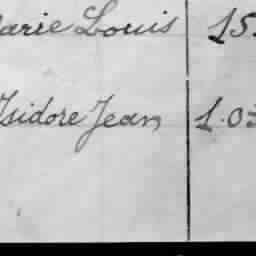 arie Louis 15
Isidore Jean 1.03